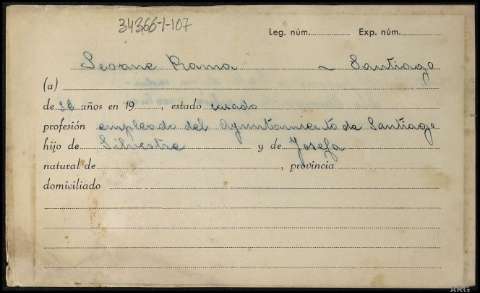 34366-1-107
Leg. núm. Exp. núm.
Seoane Rama ~ Santiago
(a)
de 38 años en 19 , estado casado
profesión empleado del Ayuntamiento de Santiago
hijo de Silvestre y de Josefa
natural de , provincia
domiciliado